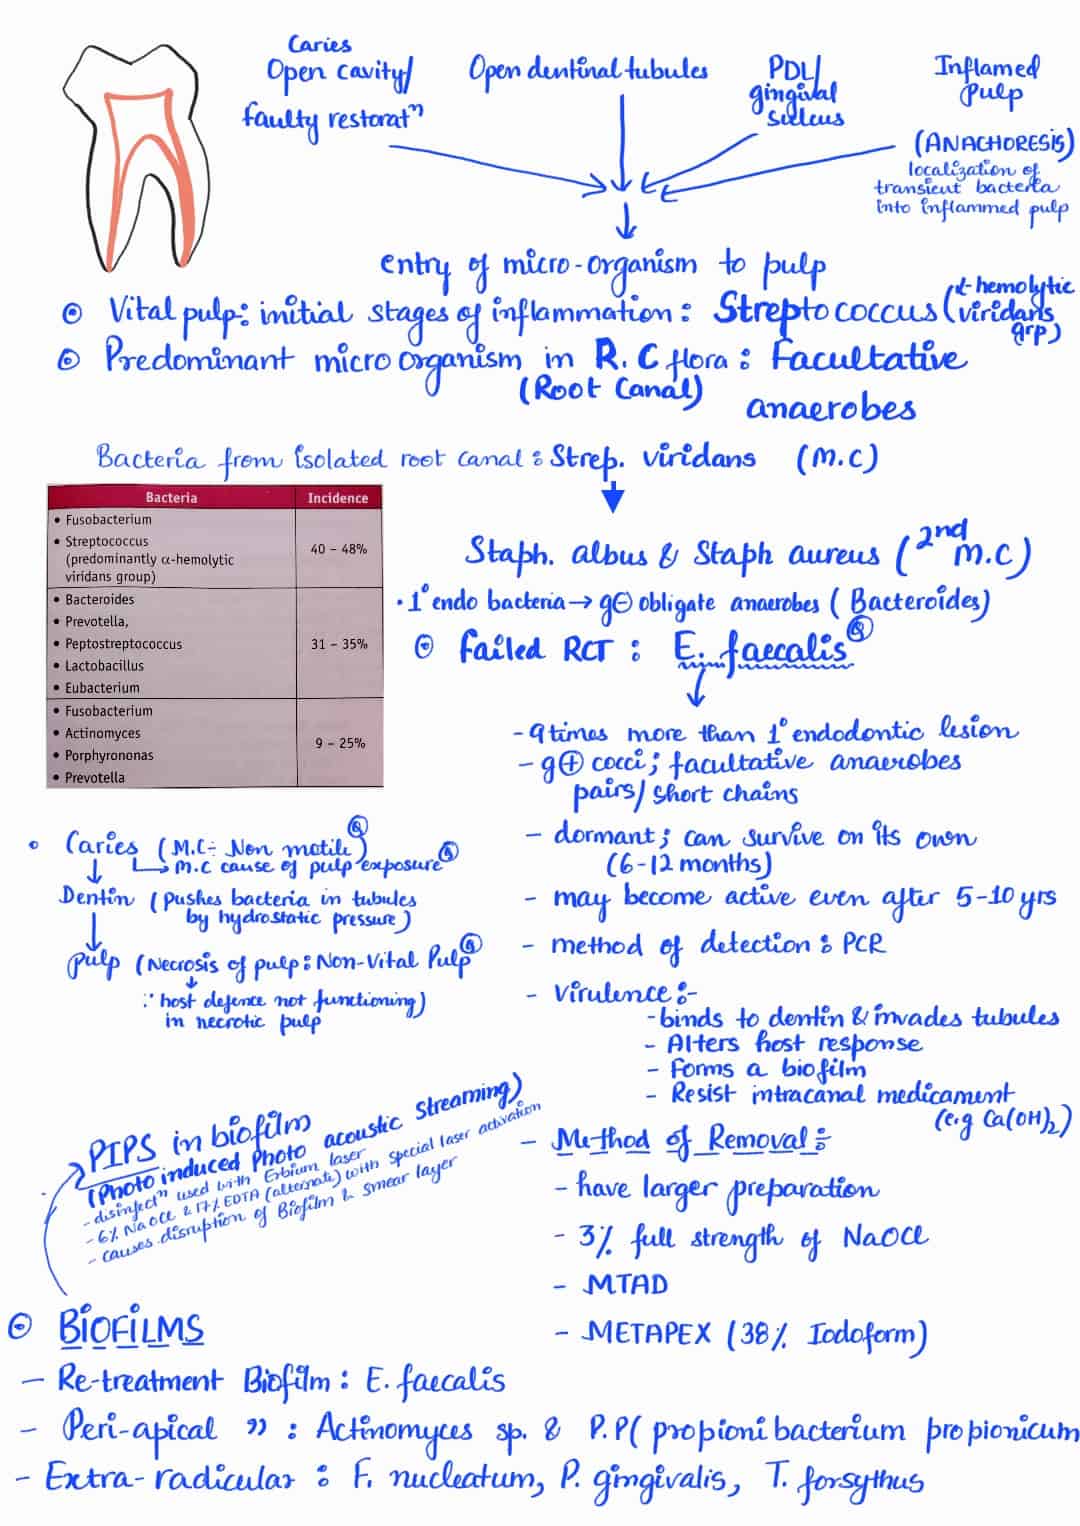 Caries
Open cavity/
faulty restoratⁿ
Open dentinal tubules
PDL/
gingival
sulcus
Inflamed
Pulp
(ANACHORESIS)
localization of
transient bacteria
into inflammed pulp
entry of micro-organism to pulp
Vital pulp: initial stages of inflammation: Streptococcus (α-hemolytic
viridans
grp)
Predominant micro organism in R.C flora: Facultative
(Root Canal)
anaerobes
Bacteria from isolated root canal: Strep. viridans (M.C)
Staph. albus & Staph aureus (2nd M.C)
• 1° endo bacteria → g⊖ obligate anaerobes (Bacteroides)
Failed RCT: E. faecalis Q
Bacteria Incidence
• Fusobacterium
• Streptococcus
(predominantly α-hemolytic
viridans group)
40 – 48%
• Bacteroides
• Prevotella,
• Peptostreptococcus
• Lactobacillus
• Eubacterium
31 – 35%
• Fusobacterium
• Actinomyces
• Porphyrononas
• Prevotella
9 – 25%
- 9 times more than 1° endodontic lesion
- g⊕ cocci; facultative anaerobes
pairs/short chains
- dormant; can survive on its own
(6-12 months)
- may become active even after 5-10 yrs
- method of detection: PCR
- Virulence:-
- binds to dentin & invades tubules
- Alters host response
- Forms a biofilm
- Resist intracanal medicament
(e.g Ca(OH)₂)
- Method of Removal:
- have larger preparation
- 3% full strength of NaOCl
- MTAD
- METAPEX (38% Iodoform)
• Caries (M.C:- Non motile) Q
→ m.c cause of pulp exposure Q
Dentin (Pushes bacteria in tubules
by hydrostatic pressure)
Pulp (Necrosis of pulp: Non-Vital Pulp Q
∵ host defence not functioning)
in necrotic pulp
PIPS in biofilm
(Photo induced Photo acoustic Streaming)
- disinfectⁿ used with Erbium laser
- 6% NaOCl & 17% EDTA (alternate) with special laser activation
- causes disruption of Biofilm & smear layer
BIOFILMS
- Re-treatment Biofilm: E. faecalis
- Peri-apical ” : Actinomyces sp. & P.P (propionibacterium propionicum
- Extra-radicular : F. nucleatum, P. gingivalis, T. forsythus